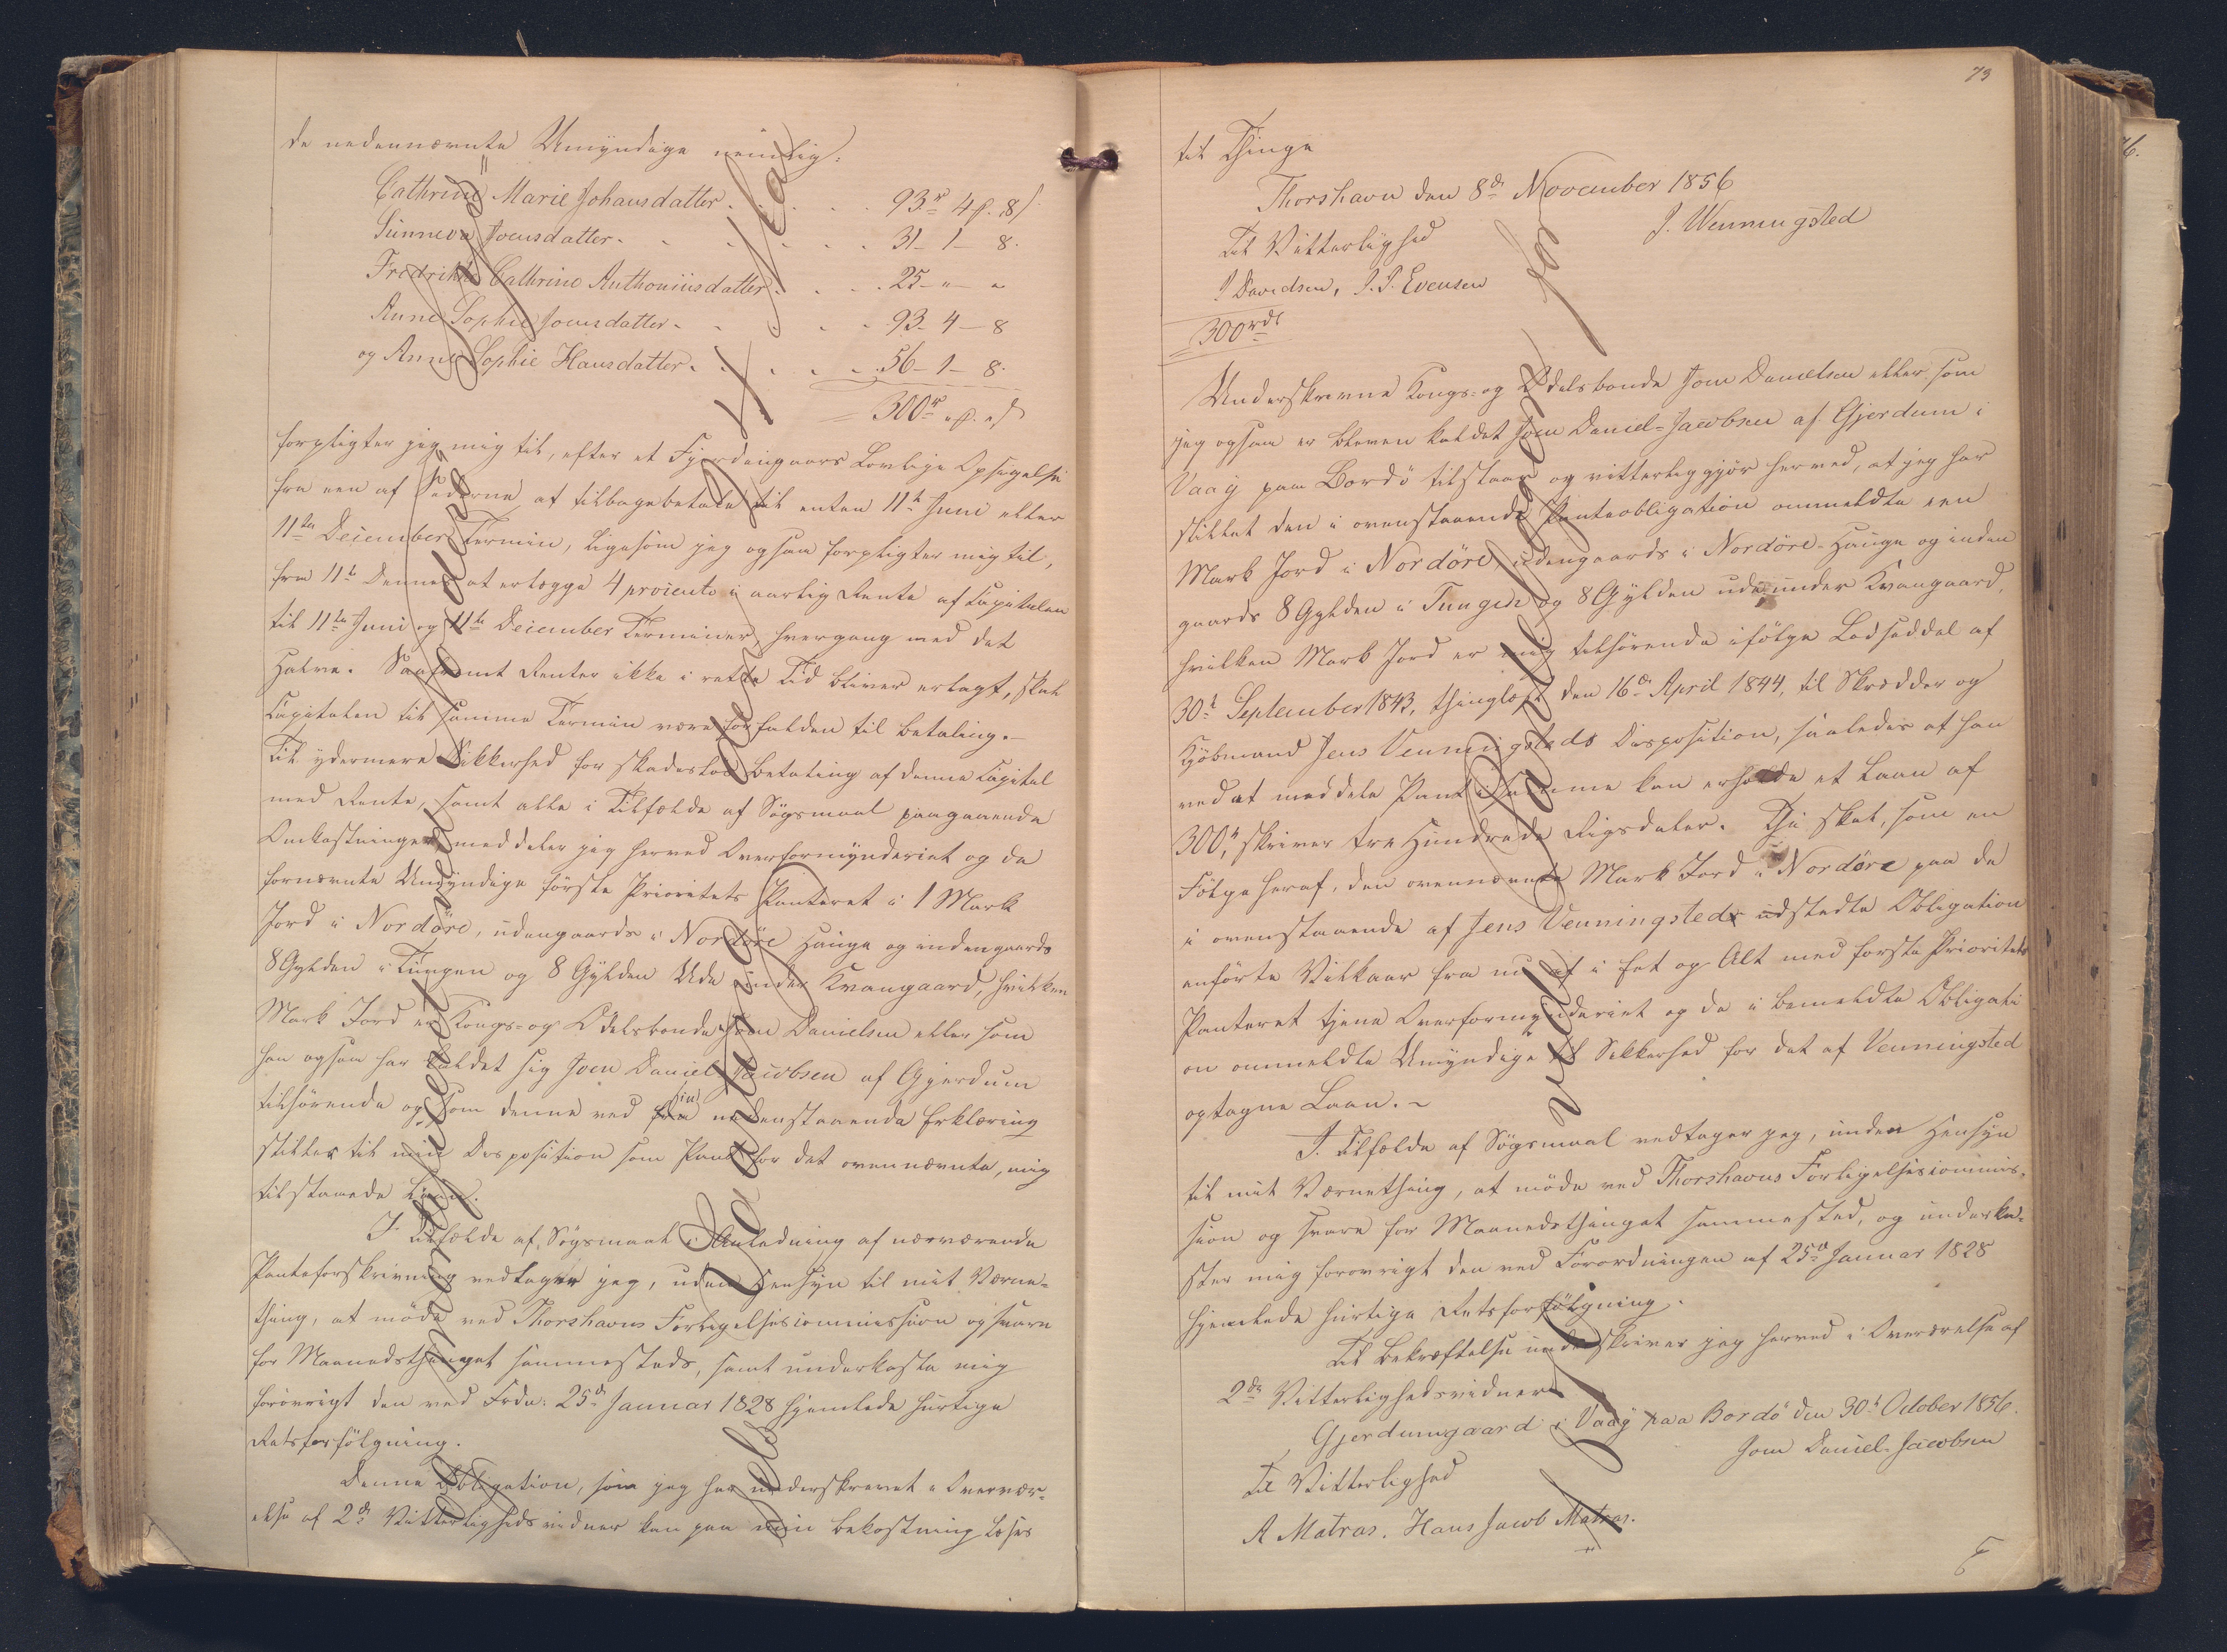 de nedennævnte Umyndige nemlig:
Cathrine Marie Johansdatter . . . . 93rd 4 β. 8/
Sunneva Joensdatter . . . . 31 - 1 - 8.
Fredrikke Cathrine Anthoniusdatter . . . 25 - " - "
Anne Sophie Joensdatter . . . . 93 - 4 - 8
og Anne Sophie Hansdatter . . . . 56 - 1 - 8.
300rd " β. " /
forpligter jeg mig til, efter et Fjerdingaars Lovlige Opsigelse
fra een af Siderne at tilbagebetale til enten 11te Juni eller
11te December Termin, ligesom jeg ogsaa forpligter mig til,
fra 11te Dennes at erlægge 4 procento i aarlig Rente af Capitalen
til 11te Juni og 11te December Terminer, hvergang med det
Halve. Saafremt Renter ikke i rette Tid bliver erlagt, skal
Capitalen til samme Termin være forfalden til Betaling.-
Til ydermere Sikkerhed for skadesløs Betaling af denne Capital
med Rente, samt alle i Tilfælde af Søgsmaal paagaaende
Omkostninger, meddeler jeg herved Overformynderiet og de
fornævnte Umyndige første Prioritets Panteret i 1 Mark
Jord i Nordöre, udengaards i Nordöre Hauge og indengaards
8 Gylden i Tungen og 8 Gylden Ude under Kvangaard, hvilken
Mark Jord er Kongs- og Odelsbonde Joen Danielsen eller, som
han ogsaa har kaldet sig Joen Daniel Jacobsen af Gjerdum
tilhørende og som denne ved sin nedenstaaende Erklæring
stiller til min Disposition som Pant for det ovennævnte, mig
tilstaaede Laan.
I Tilfælde af Søgsmaal i Anledning af nærværende
Panteforskrivning vedtager jeg, uden Hensyn til mit Værne-
thing, at møde ved Thorshavns Forligelsescommission og svare
for Maanedsthinget sammesteds, samt underkaste mig
forøvrigt den ved Frdn. 25de Januar 1828 hjemlede hurtige
Retsforfölgning.
Denne Obligation, som jeg har underskrevet i Overvær-
else af 2de Vitterlighedsvidner kan paa min Bekostning læses
73
til Thinge
Thorshavn den 8de November 1856
J. Wenningsted
Til Vitterlighed
J Davidsen, J. P. Evensen
300rdl
Underskrevne Kongs- og Odelsbonde Joen Danielsen eller som
jeg ogsaa er bleven kaldet Joen Daniel-Jacobsen af Gjerdum i
Vaag paa Bordö tilstaar og vitterliggjör herved, at jeg har
stillet den i ovenstaaende Panteobligation ommeldte een
Mark Jord i Nordöre, udengaards i Nordöre-Hauge og inden
gaards 8 Gylden i Tungen og 8 Gylden ude under Kvangaard,
hvilken Mark Jord er mig tilhørende ifölge Lodseddel af
30te September 1843, thinglæst den 16de April 1844, til Skrædder og
Kjöbmand Jens Venningsteds Disposition, saaledes at han
ved at meddele Pant i samme kan erholde et Laan af
300rd, skriver tre Hundrede Rigsdaler. Thi skal, som en
Fölge heraf, den ovennævnte Mark Jord i Nordöre paa de
i ovenstaaende af Jens Venningsted udstedte Obligation
anförte Vilkaar fra nu af i Eet og Alt med første Prioritets
Panteret tjene Overformynderiet og de i bemeldte Obligati
on ommeldte Umyndige til Sikkerhed for det af Venningsted
optagne Laan.-
I Tilfælde af Søgsmaal vedtager jeg, uden Hensyn
til mit Værnething, at möde ved Thorshavns Forligelsescommis-
sion og svare for Maanedsthinget sammested, og underka-
ster mig forøvrigt den ved Forordningen af 25de Januar 1828
hjemlede hurtige Retsforfölgning.
Til Bekræftelse underskriver jeg herved i Overværelse af
2de Vitterlighedsvidner
Gjerdumgaard i Vaag paa Bordö den 30te October 1856.
Joen Daniel-Jacobsen
Til Vitterlighed
A Matras. Hans Jacob Matras.